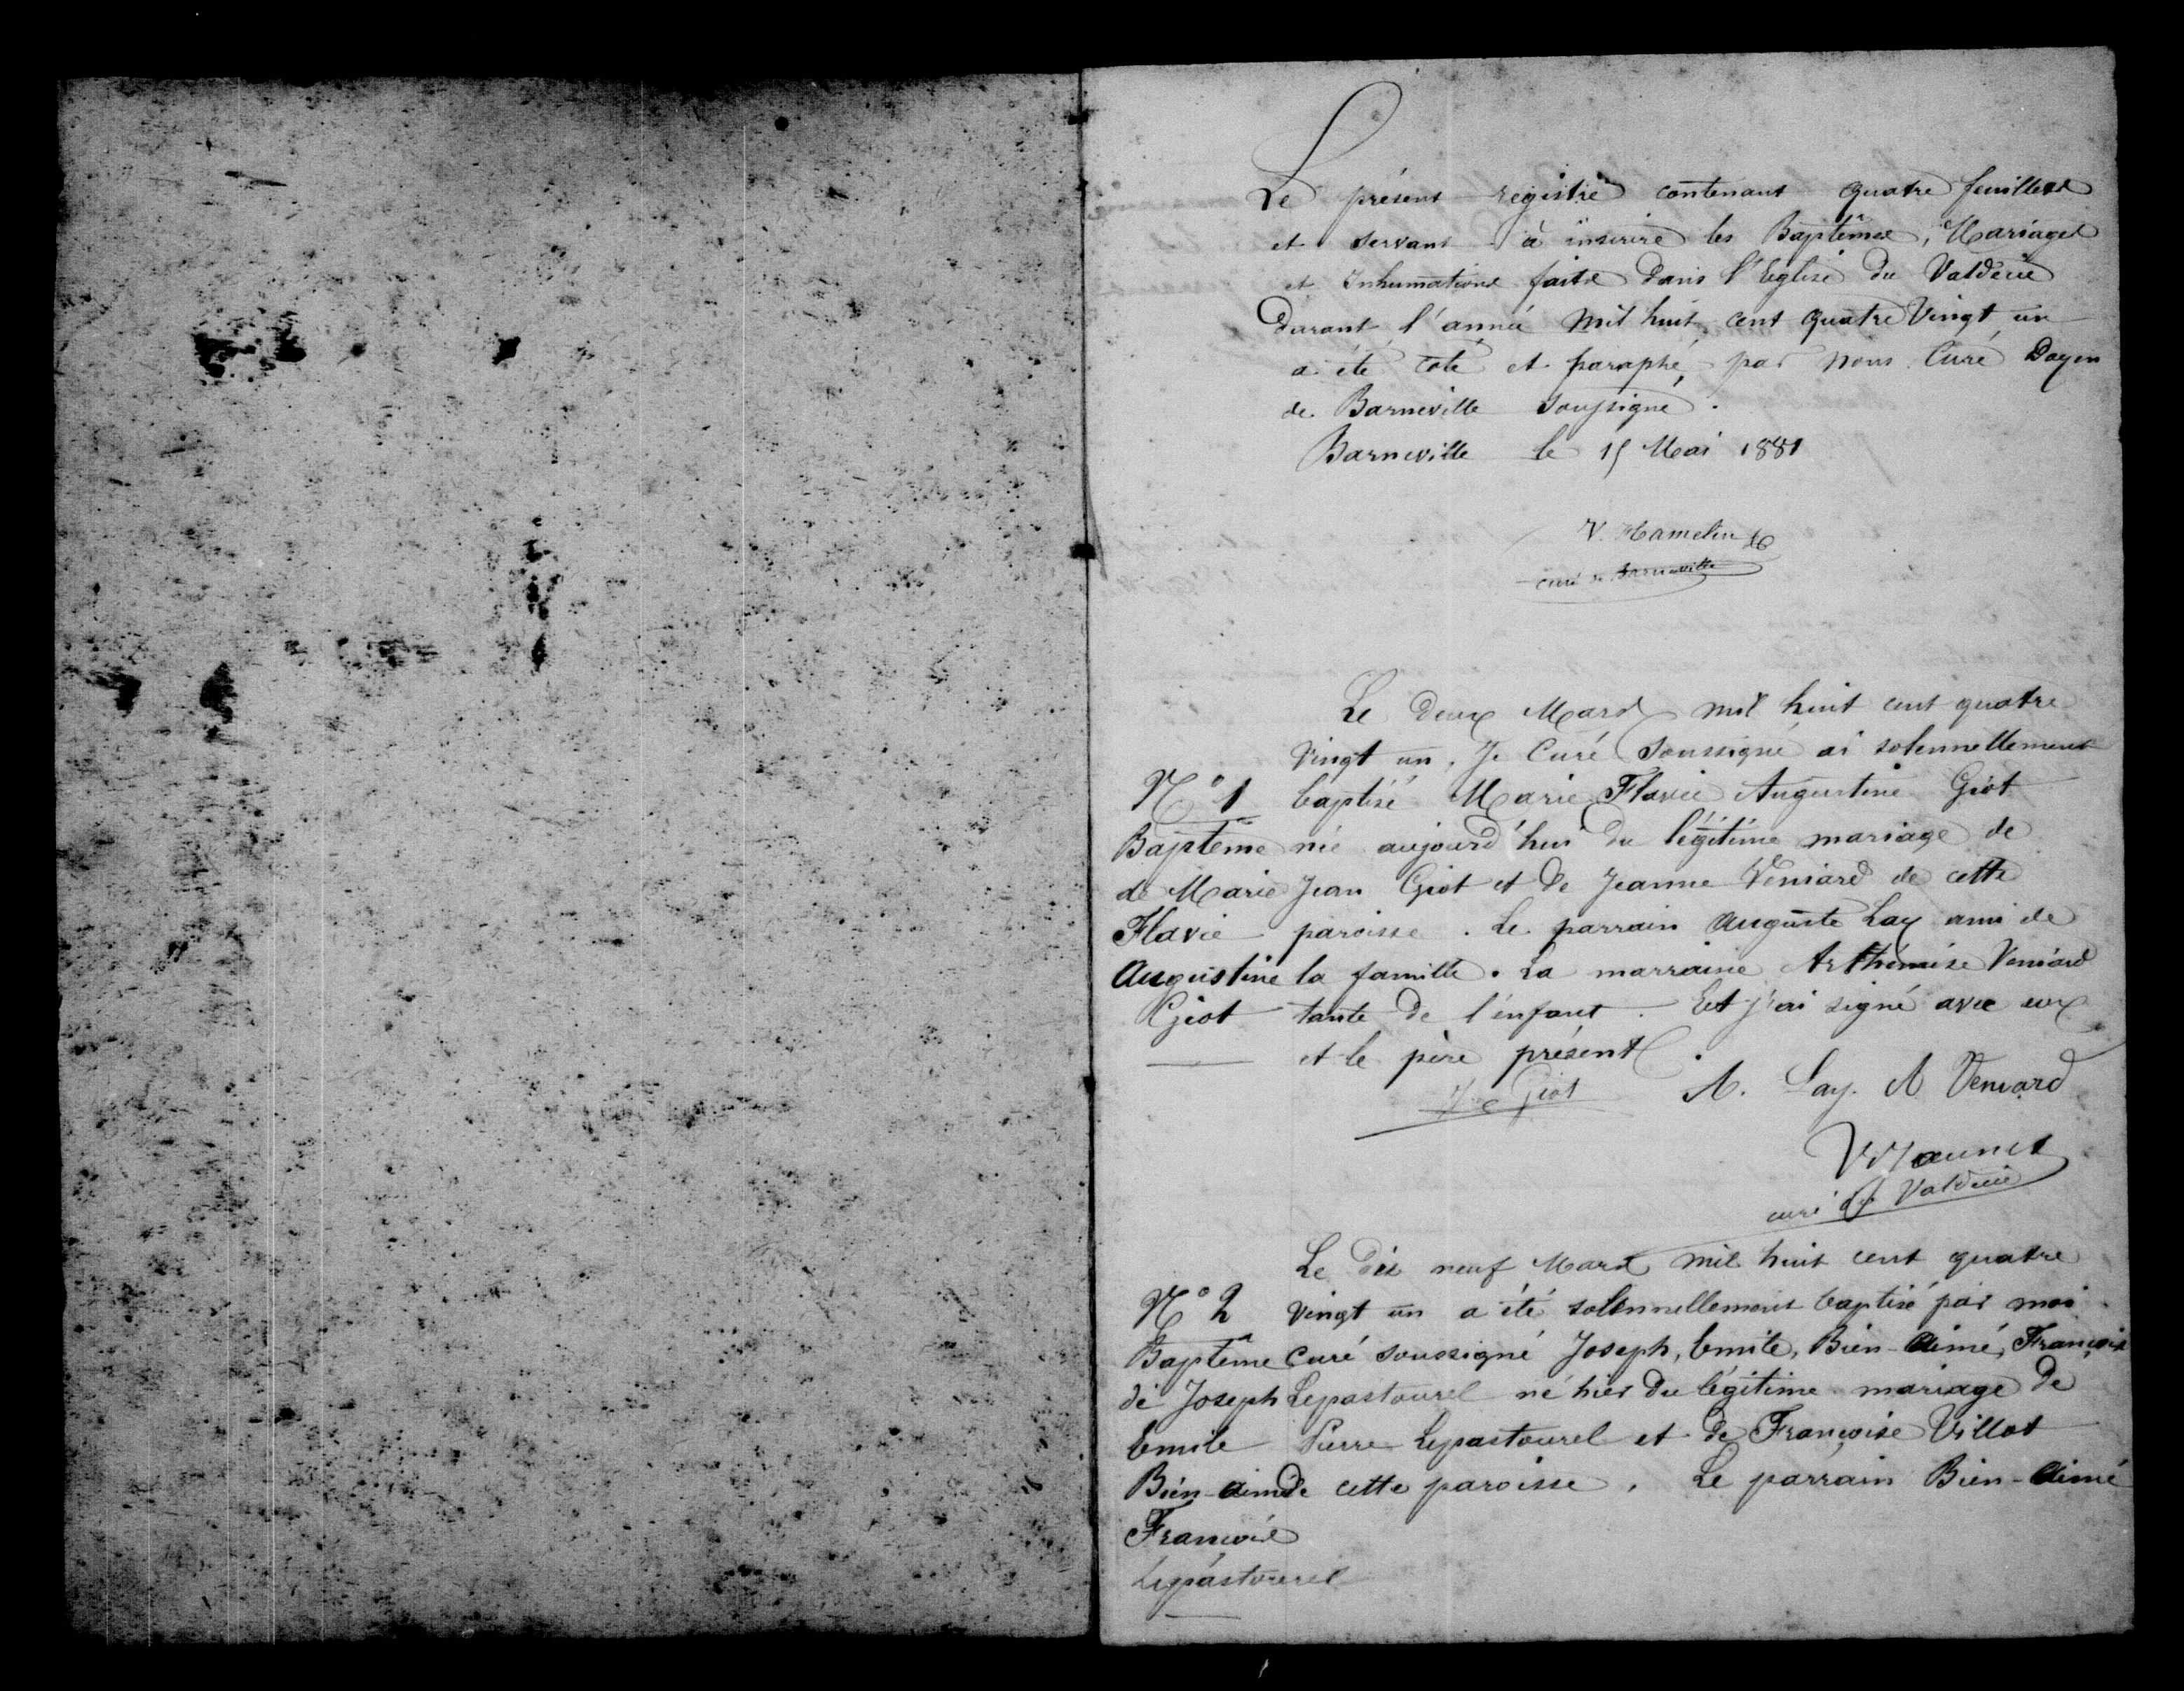 Le présent registre contenant quatre feuillets
et servant à inscrire les Baptêmes, Mariages
et Inhumations faits dans l'Eglise du Valdécie
Durant l'année mil huit cent quatre Vingt un
a été coté et paraphé, par nous Curé Doyen
de Barneville soussigné.
Barneville le 15 Mai 1881
V. Hamelin
curé de Barneville
N° 1
Baptême
de Marie
Flavie
Augustine
Giot
Le deux Mars mil huit cent quatre
vingt un, Je Curé soussigné ai solennellement
baptisé Marie Flavie Augustine Giot
née aujourd'hui du légitime mariage de
Jean Giot et de Jeanne Véniard de cette
paroisse. Le parrain Auguste Lay ami de
la famille. La marraine Arthémise Véniard
tante de l'enfant. Et j'ai signé avec eux
et le père présent.
Giot A. Lay. A Veniard
curé du Valdécie
N° 2
Baptême
de Joseph
Emile
Bien-aimé
François
Lepastourel
Le dix neuf Mars mil huit cent quatre
vingt un a été solennellement baptisé par moi
Curé soussigné Joseph, Emile, Bien-Aimé, François
Lepastourel né hier du légitime mariage de
Pierre Lepastourel et de Françoise Villot
de cette paroisse. Le parrain Bien-Aimé